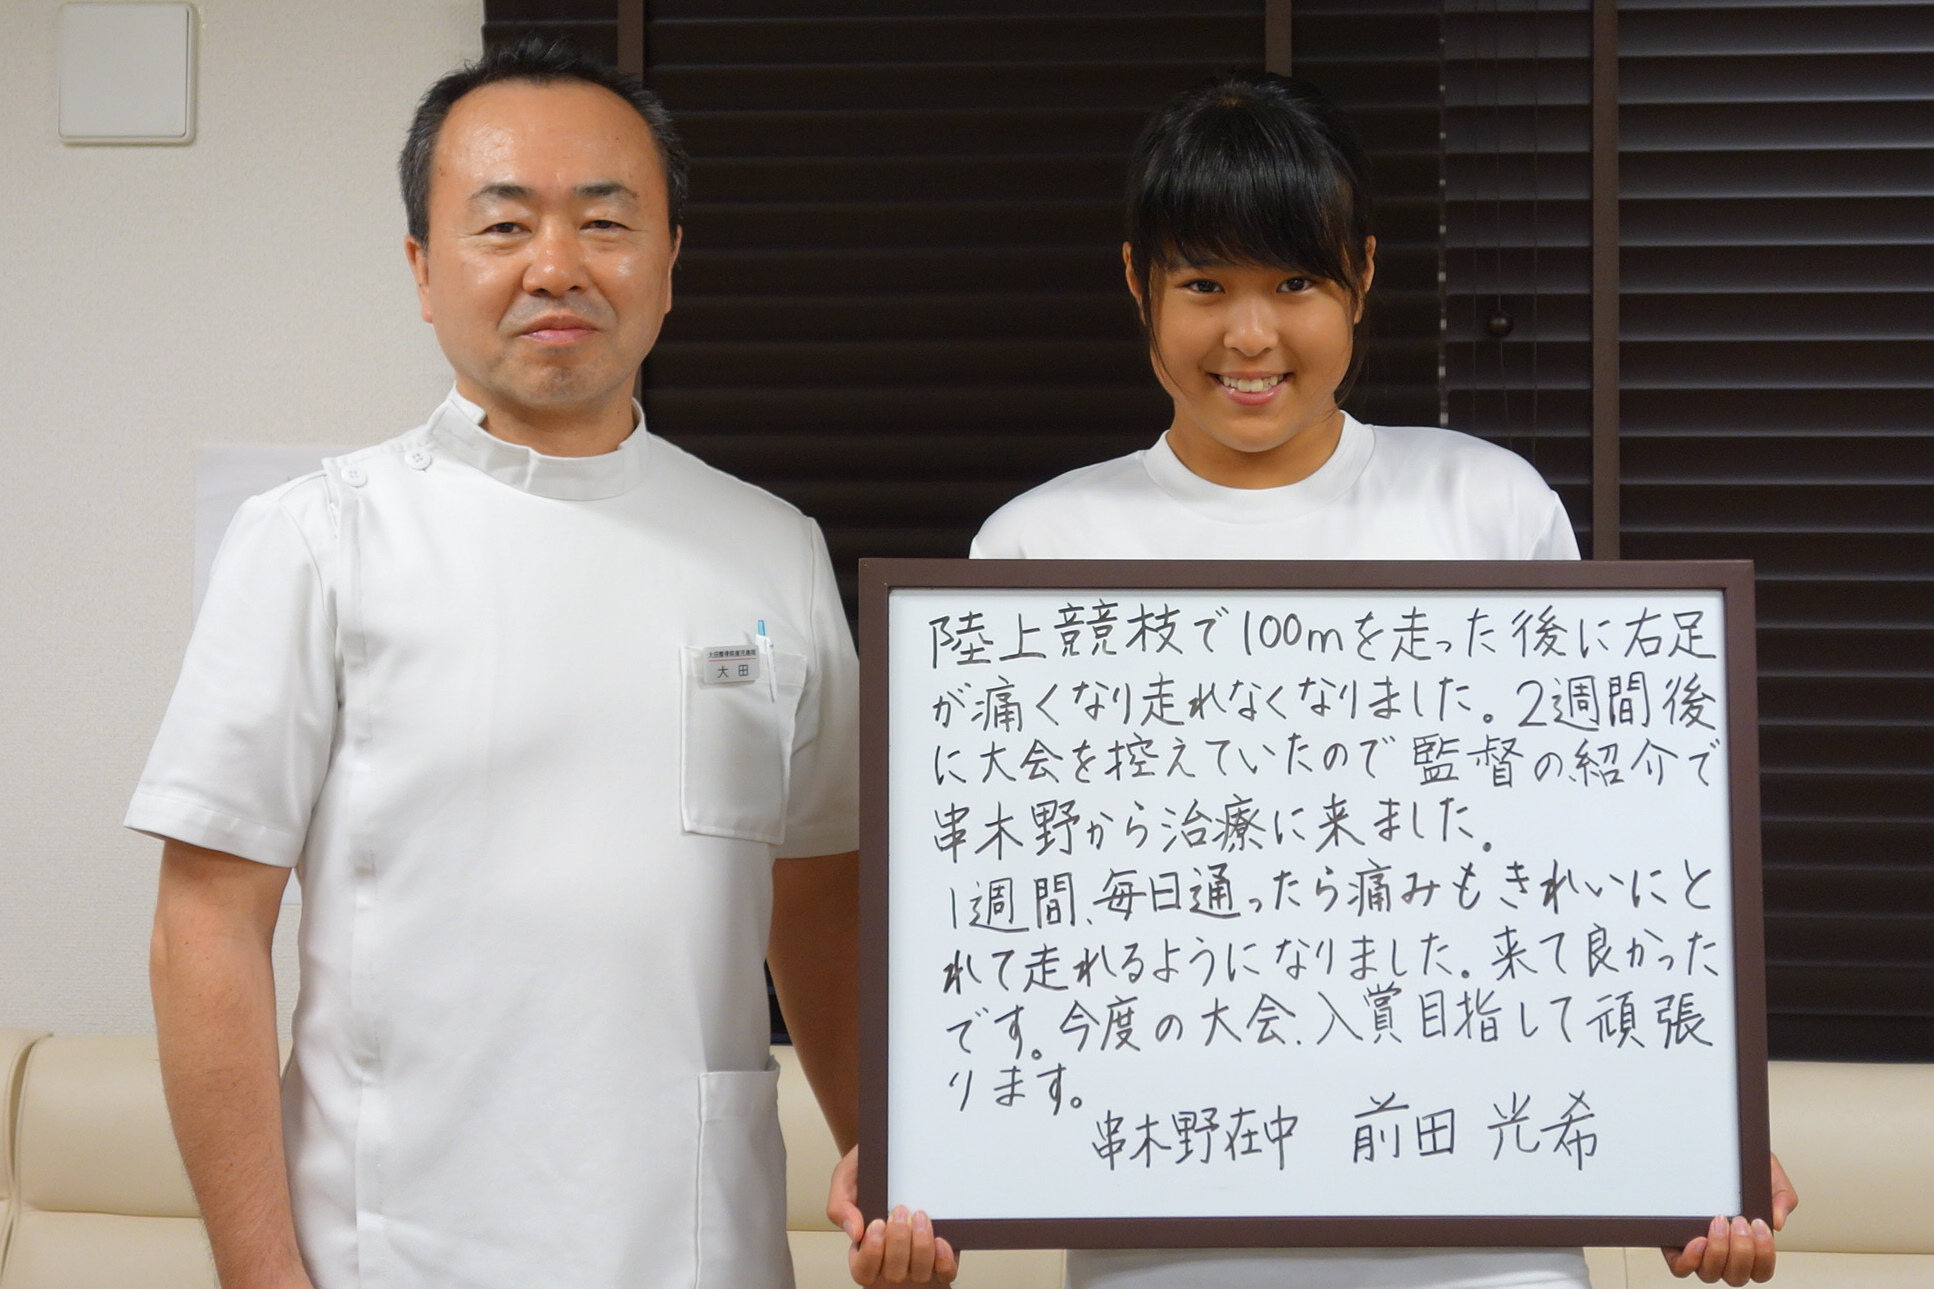 大田
陸上競技で100mを走った後に右足
が痛くなり走れなくなりました。2週間後
に大会を控えていたので監督の紹介で
串木野から治療に来ました。
1週間、毎日通ったら痛みもきれいにと
れて走れるようになりました。来て良かった
です。今度の大会、入賞目指して頑張
ります。
串木野在中 前田 光希